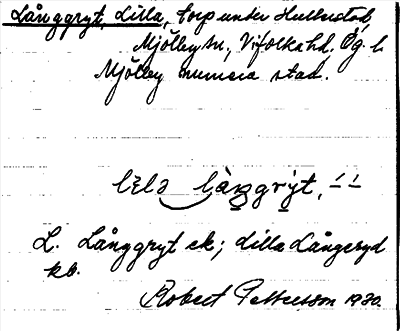 Långgryt, Lilla, torp under Hulterstad,
Mjölby sn, Vifolka hd. Ög. l.
Mjölby numera stad.
lɩlɘ làŋgrýt,
L. Långgryt ek; Lilla Långeryd
kb.
Robert Pettersson 1930.